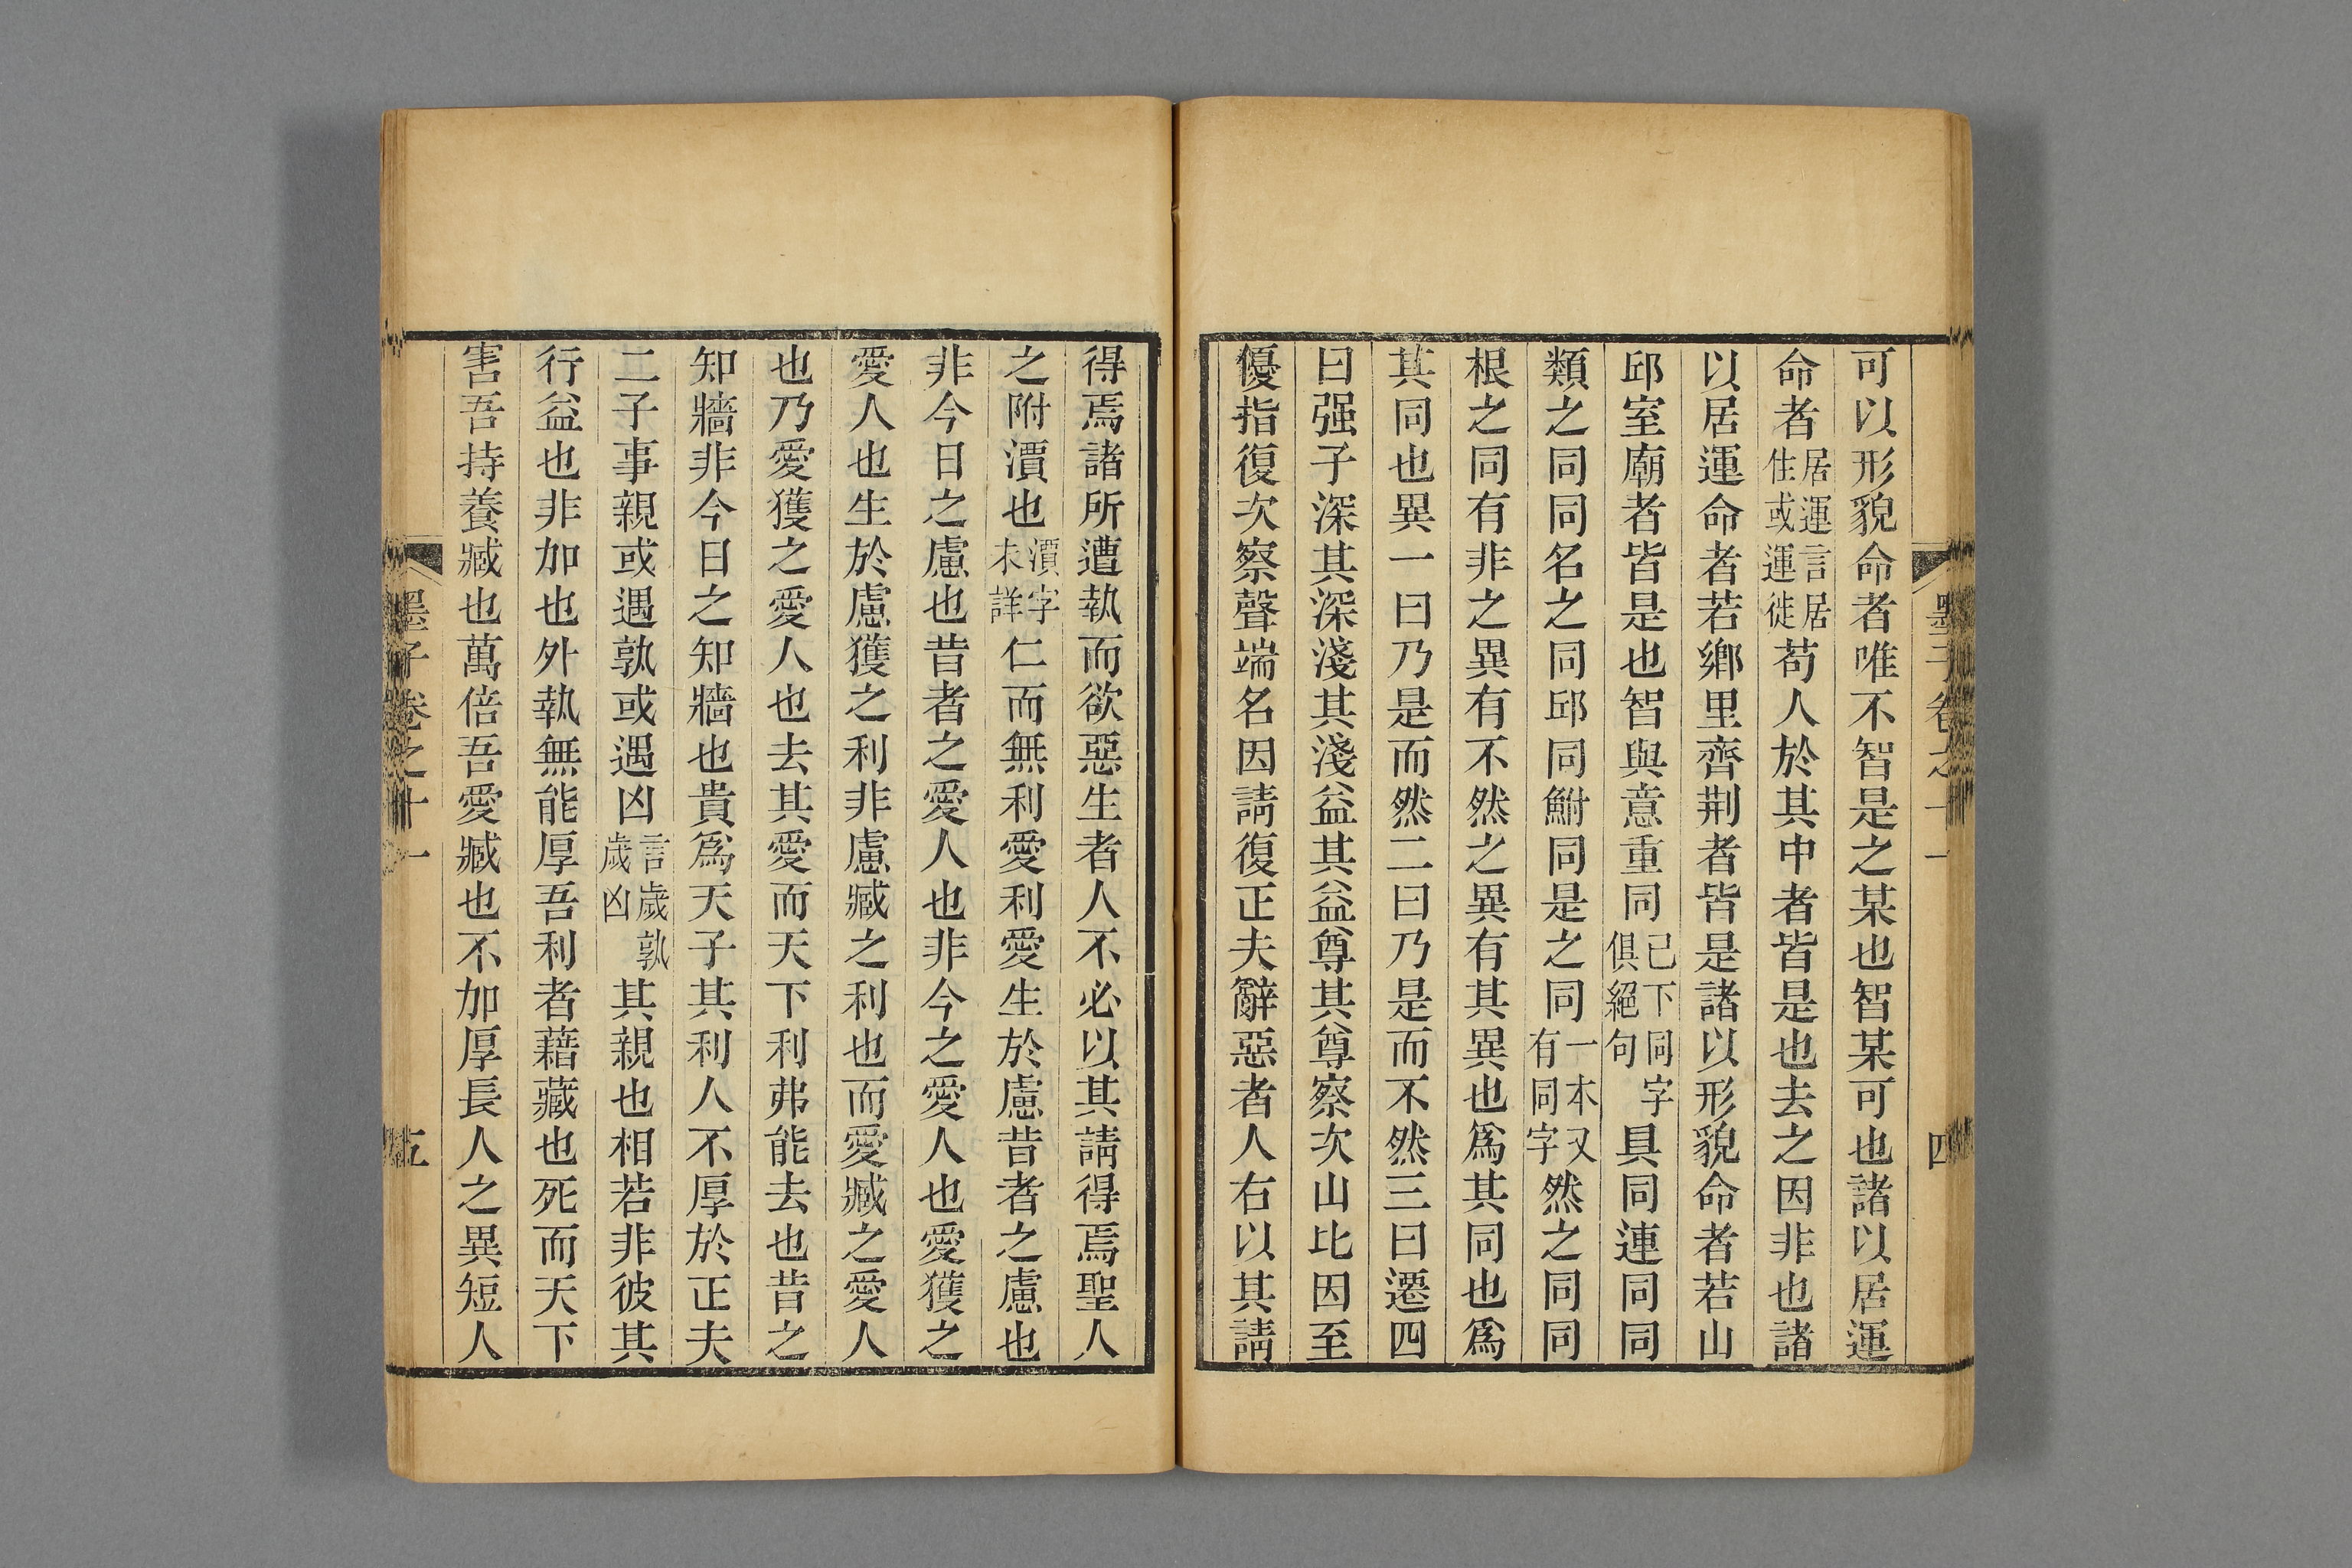 墨子卷之十一
四
可以形貌命者唯不智是之某也智某可也諸以居運
命者居運言居住或運徙苟人於其中者皆是也去之因非也諸
以居運命者若鄉里齊荆者皆是諸以形貌命者若山
邱室廟者皆是也智與意重同已下同字俱絕句具同連同同
類之同同名之同邱同鮒同是之同一本又有同字然之同同
根之同有非之異有不然之異有其異也爲其同也爲
其同也異一曰乃是而然二曰乃是而不然三曰遷四
曰强子深其深淺其淺益其益尊其尊察次山比因至
優指復次察聲端名因請復正夫辭惡者人右以其請
得焉諸所遭執而欲惡生者人不必以其請得焉聖人
之附瀆也瀆字未詳仁而無利愛利愛生於慮昔者之慮也
非今日之慮也昔者之愛人也非今之愛人也愛獲之
愛人也生於慮獲之利非慮臧之利也而愛臧之愛人
也乃愛獲之愛人也去其愛而天下利弗能去也昔之
知牆非今日之知牆也貴爲天子其利人不厚於正夫
二子事親或遇孰或遇凶言歲孰歲凶其親也相若非彼其
行益也非加也外執無能厚吾利者藉藏也死而天下
害吾持養臧也萬倍吾愛臧也不加厚長人之異短人
墨子卷之十一
五